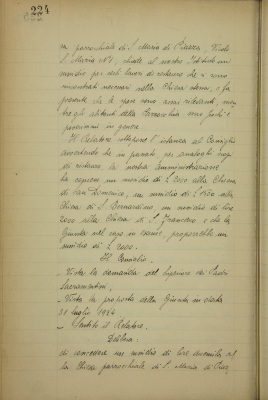 224
sa parrocchiale di S. Maria di Piazza, Vicolo
S. Maria N° 1, chiede al nostro Istituto un
sussidio pei seri lavori di restauro che si sono
riscontrati necessari nella Chiesa stessa, e fa
presente che le spese sono assai rilevanti,
tra gli abitanti della Parrocchia sono pochi i
in genere.
Il Relatore sottopone l'istanza al Consiglio
avvertendo che in passato per analoghi
di restauro la nostra Amministrazione
ha concesso un sussidio di L. 2000 alla Chiesa
di San Domenico, un sussidio di L. 1500 alla
Chiesa di S. Bernardino un sussidio di lire
2000 alla Chiesa di S. Francesco e che la
Giunta nel caso in esame, proporrebbe un
sussidio di L. 2000.
Il Consiglio.
- Vista la domanda del Superiore dei Padri
Sacramentini,
- Vista la proposta della Giunta in data
31 luglio 1924
- Sentito il Relatore.
Delibera:
di concedere un sussidio di lire duemila alla
Chiesa parrocchiale di S. Maria di Piaz